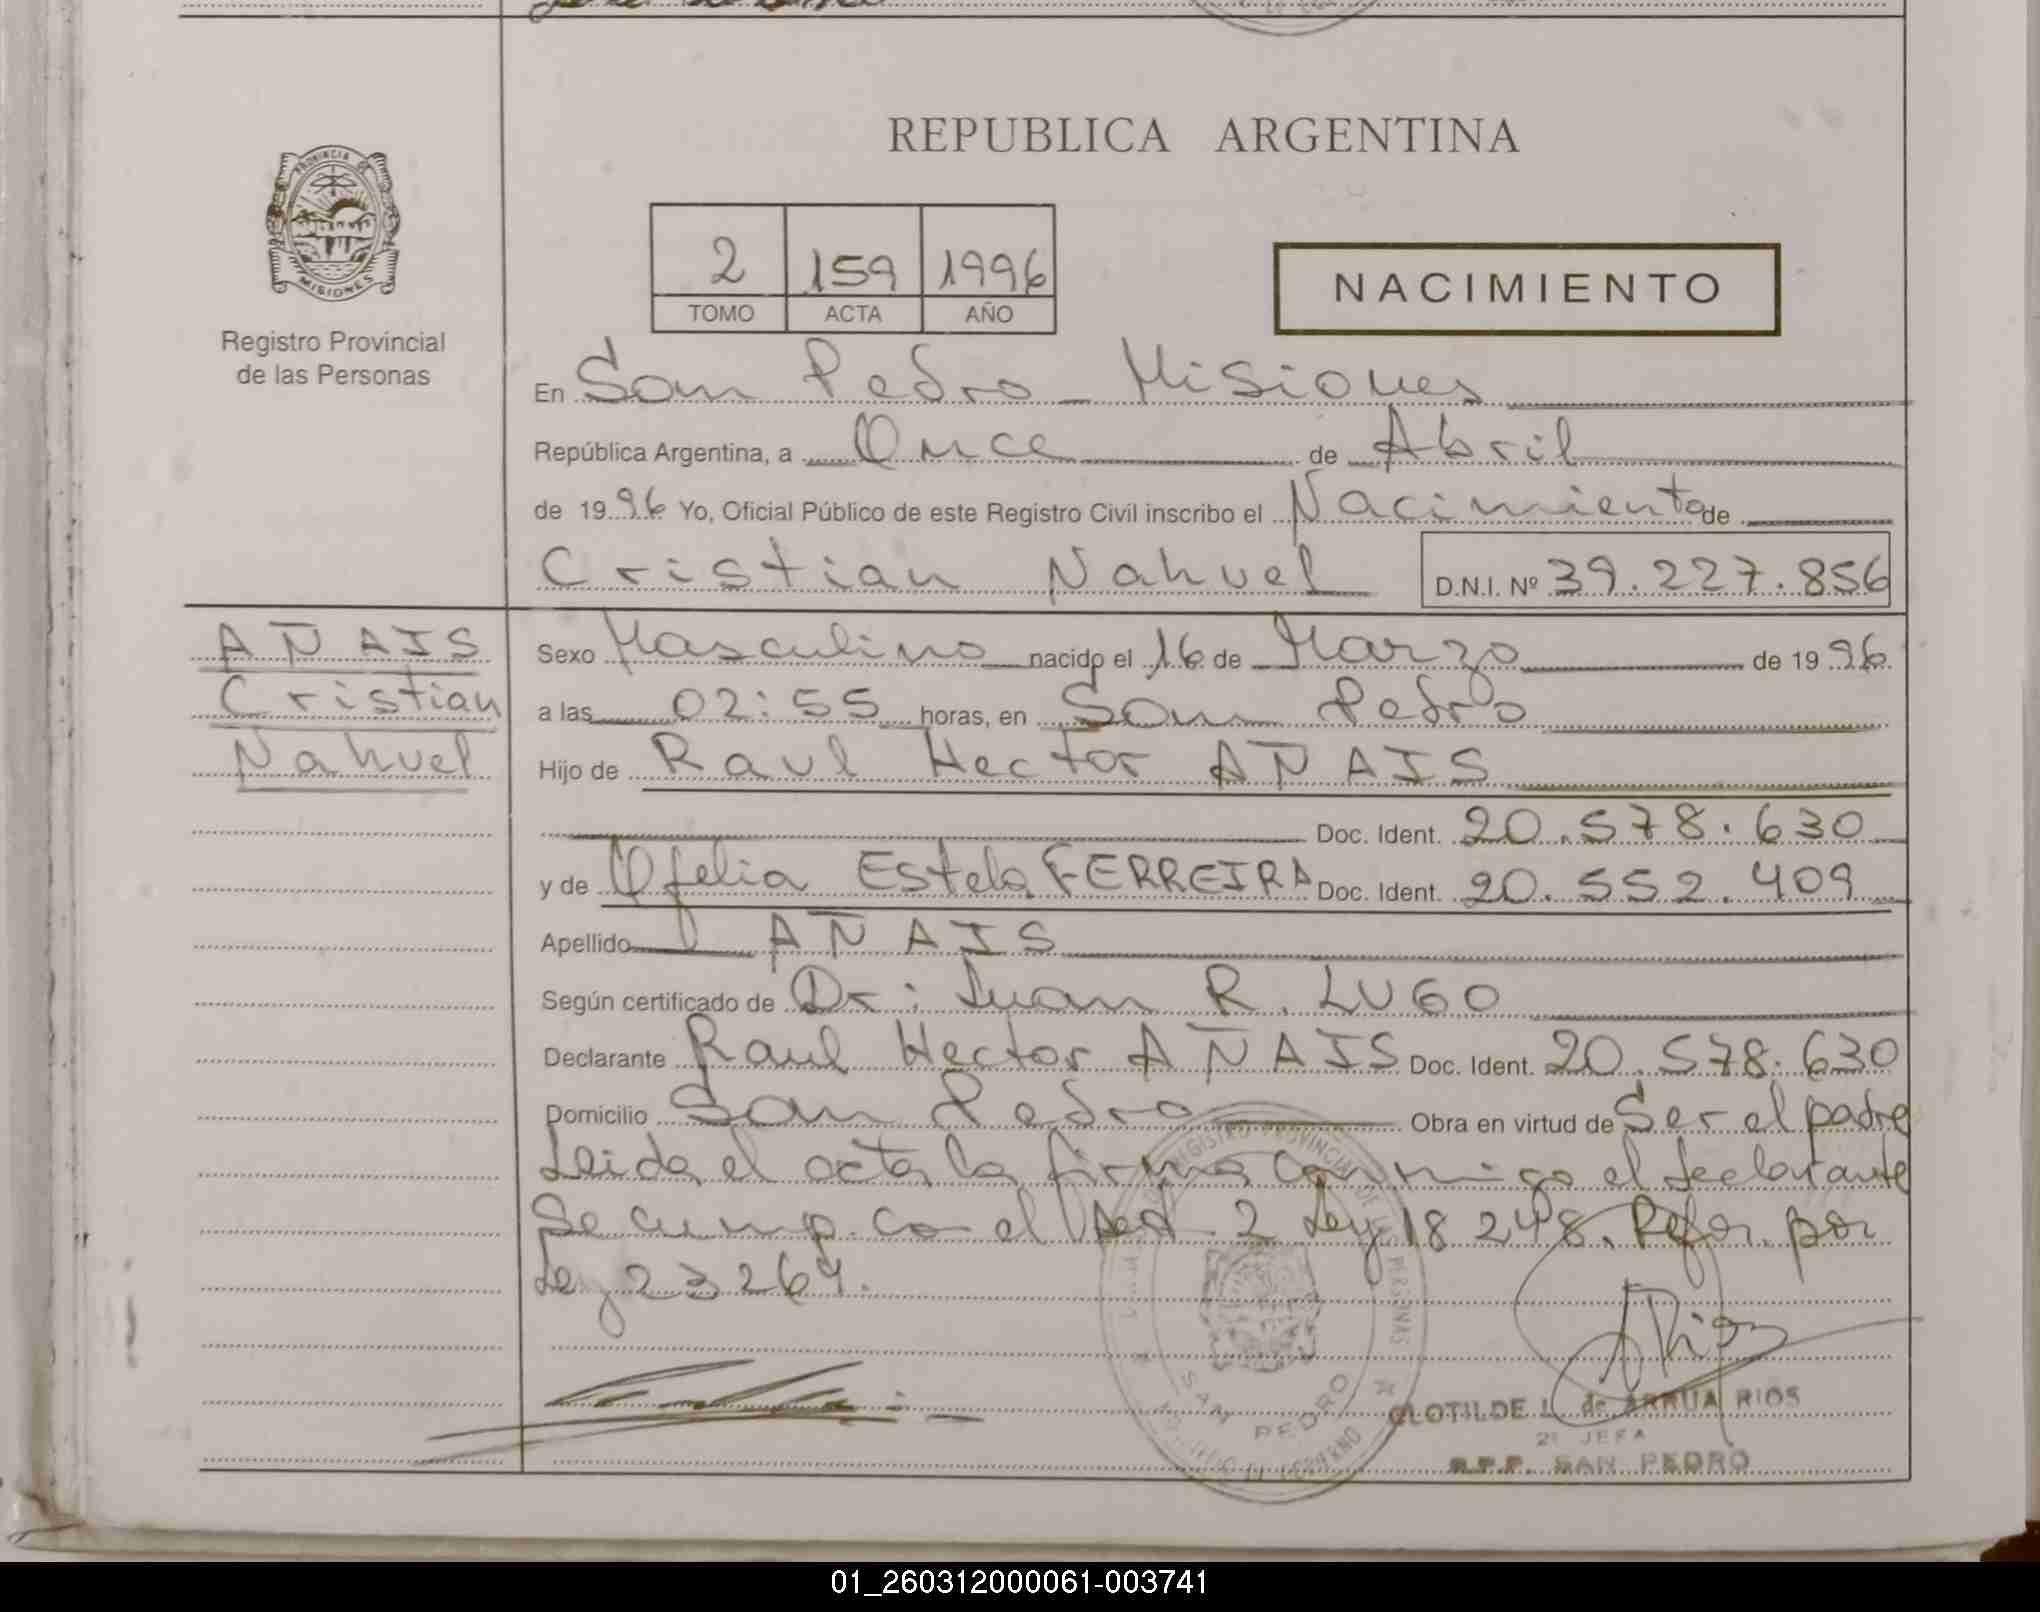 REPUBLICA ARGENTINA
PROVINCIA DE
MISIONES
Registro Provincial
de las Personas
2 159 1996
TOMO ACTA AÑO
NACIMIENTO
En San Pedro - Misiones
República Argentina, a Once de Abril
de 1996 Yo, Oficial Público de este Registro Civil inscribo el Nacimiento de
Cristian Nahuel D.N.I. Nº 39.227.856
AÑAIS
Cristian
Nahuel
Sexo Masculino nacido el 16 de Marzo de 1996
a las 02:55 horas, en San Pedro
Hijo de Raul Hector AÑAIS
Doc. Ident. 20.578.630
y de Ofelia Estela FERREIRA Doc. Ident. 20.552.409
Apellido AÑAIS
Según certificado de Dr: Juan R. LUGO
Declarante Raul Hector AÑAIS Doc. Ident. 20.578.630
Domicilio San Pedro Obra en virtud de Ser el padre
Leida el acta la firma conmigo el declarante
Se cump. co el Art. 2 Ley 18248. Refor. por
Ley 23264.
REGISTRO PROVINCIAL DE LAS PERSONAS
SAN PEDRO
CLOTILDE L. de ARRUA RIOS
2ª JEFA
R.P.P. SAN PEDRO
01_260312000061-003741